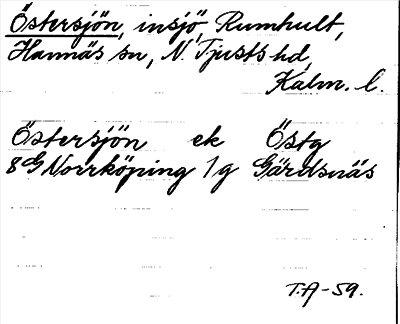 Östersjön, insjö, Rumhult,
Hannäs sn, N. Tjusts hd,
Kalm. l.
Östersjön ek Östg
8G Norrköping 1g Gärdsnäs
T.A-59.